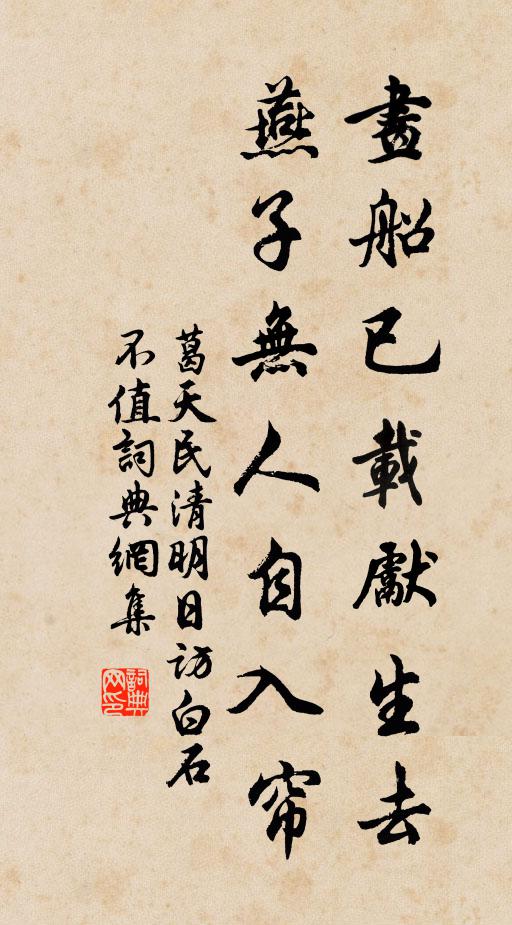 畫船已載獻生去
燕子無人自入帘
葛天民清明日訪白石
不值詞典網集
詞典
网印